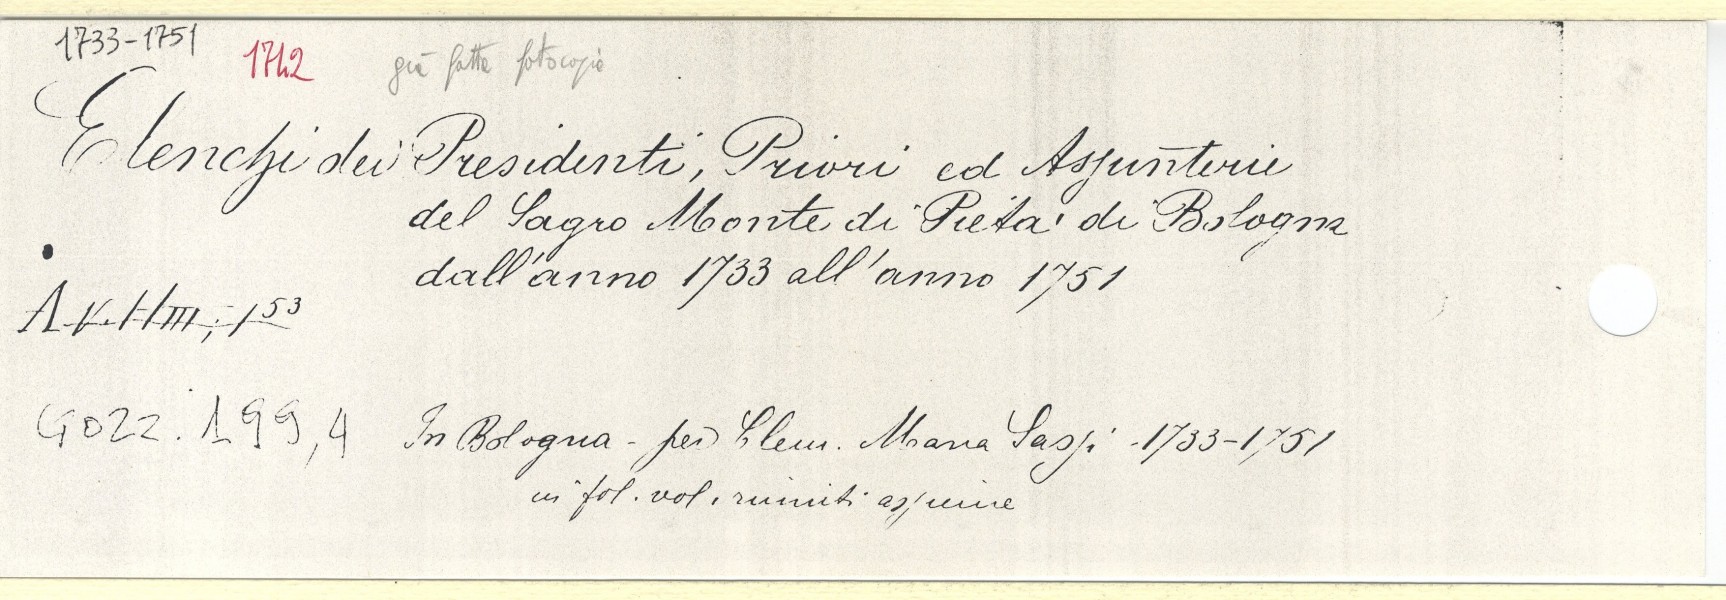 1733-1751
1742
già fatte fotocopie
Elenchi dei Presidenti, Priori ed Assunterie
del Sagro Monte di Pietà di Bologna
dall'anno 1733 all'anno 1751
A.V.H.III, 1 53
GOZZ. 199,4
In Bologna - per Clem. Maria Sassi - 1733-1751
in fol. vol. riuniti assieme